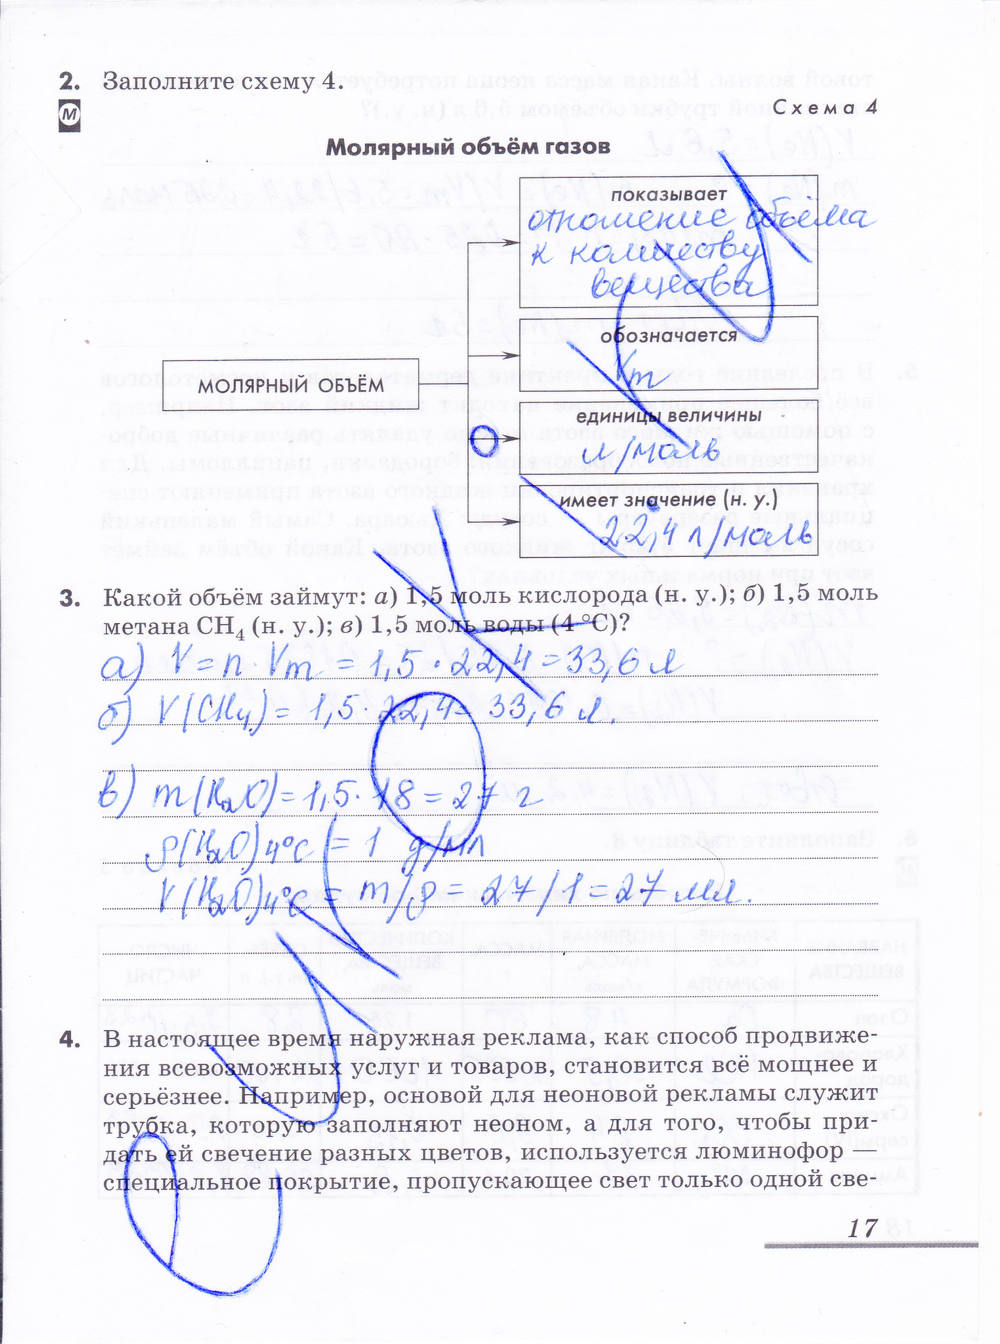 2. Заполните схему 4.
М
Схема 4
Молярный объём газов
МОЛЯРНЫЙ ОБЪЁМ
показывает
отношение объёма
к количеству
вещества
обозначается
Vm
единицы величины
л/моль
имеет значение (н. у.)
22,4 л/моль
3. Какой объём займут: а) 1,5 моль кислорода (н. у.); б) 1,5 моль
метана CH4 (н. у.); в) 1,5 моль воды (4 °C)?
а) V = n · Vm = 1,5 · 22,4 = 33,6 л
б) V(CH4) = 1,5 · 22,4 = 33,6 л.
в) m(H2O) = 1,5 · 18 = 27 г
ρ(H2O)4°C = 1 г/мл
V(H2O)4°C = m/ρ = 27/1 = 27 мл.
4. В настоящее время наружная реклама, как способ продвиже-
ния всевозможных услуг и товаров, становится всё мощнее и
серьёзнее. Например, основой для неоновой рекламы служит
трубка, которую заполняют неоном, а для того, чтобы при-
дать ей свечение разных цветов, используется люминофор —
специальное покрытие, пропускающее свет только одной све-
17